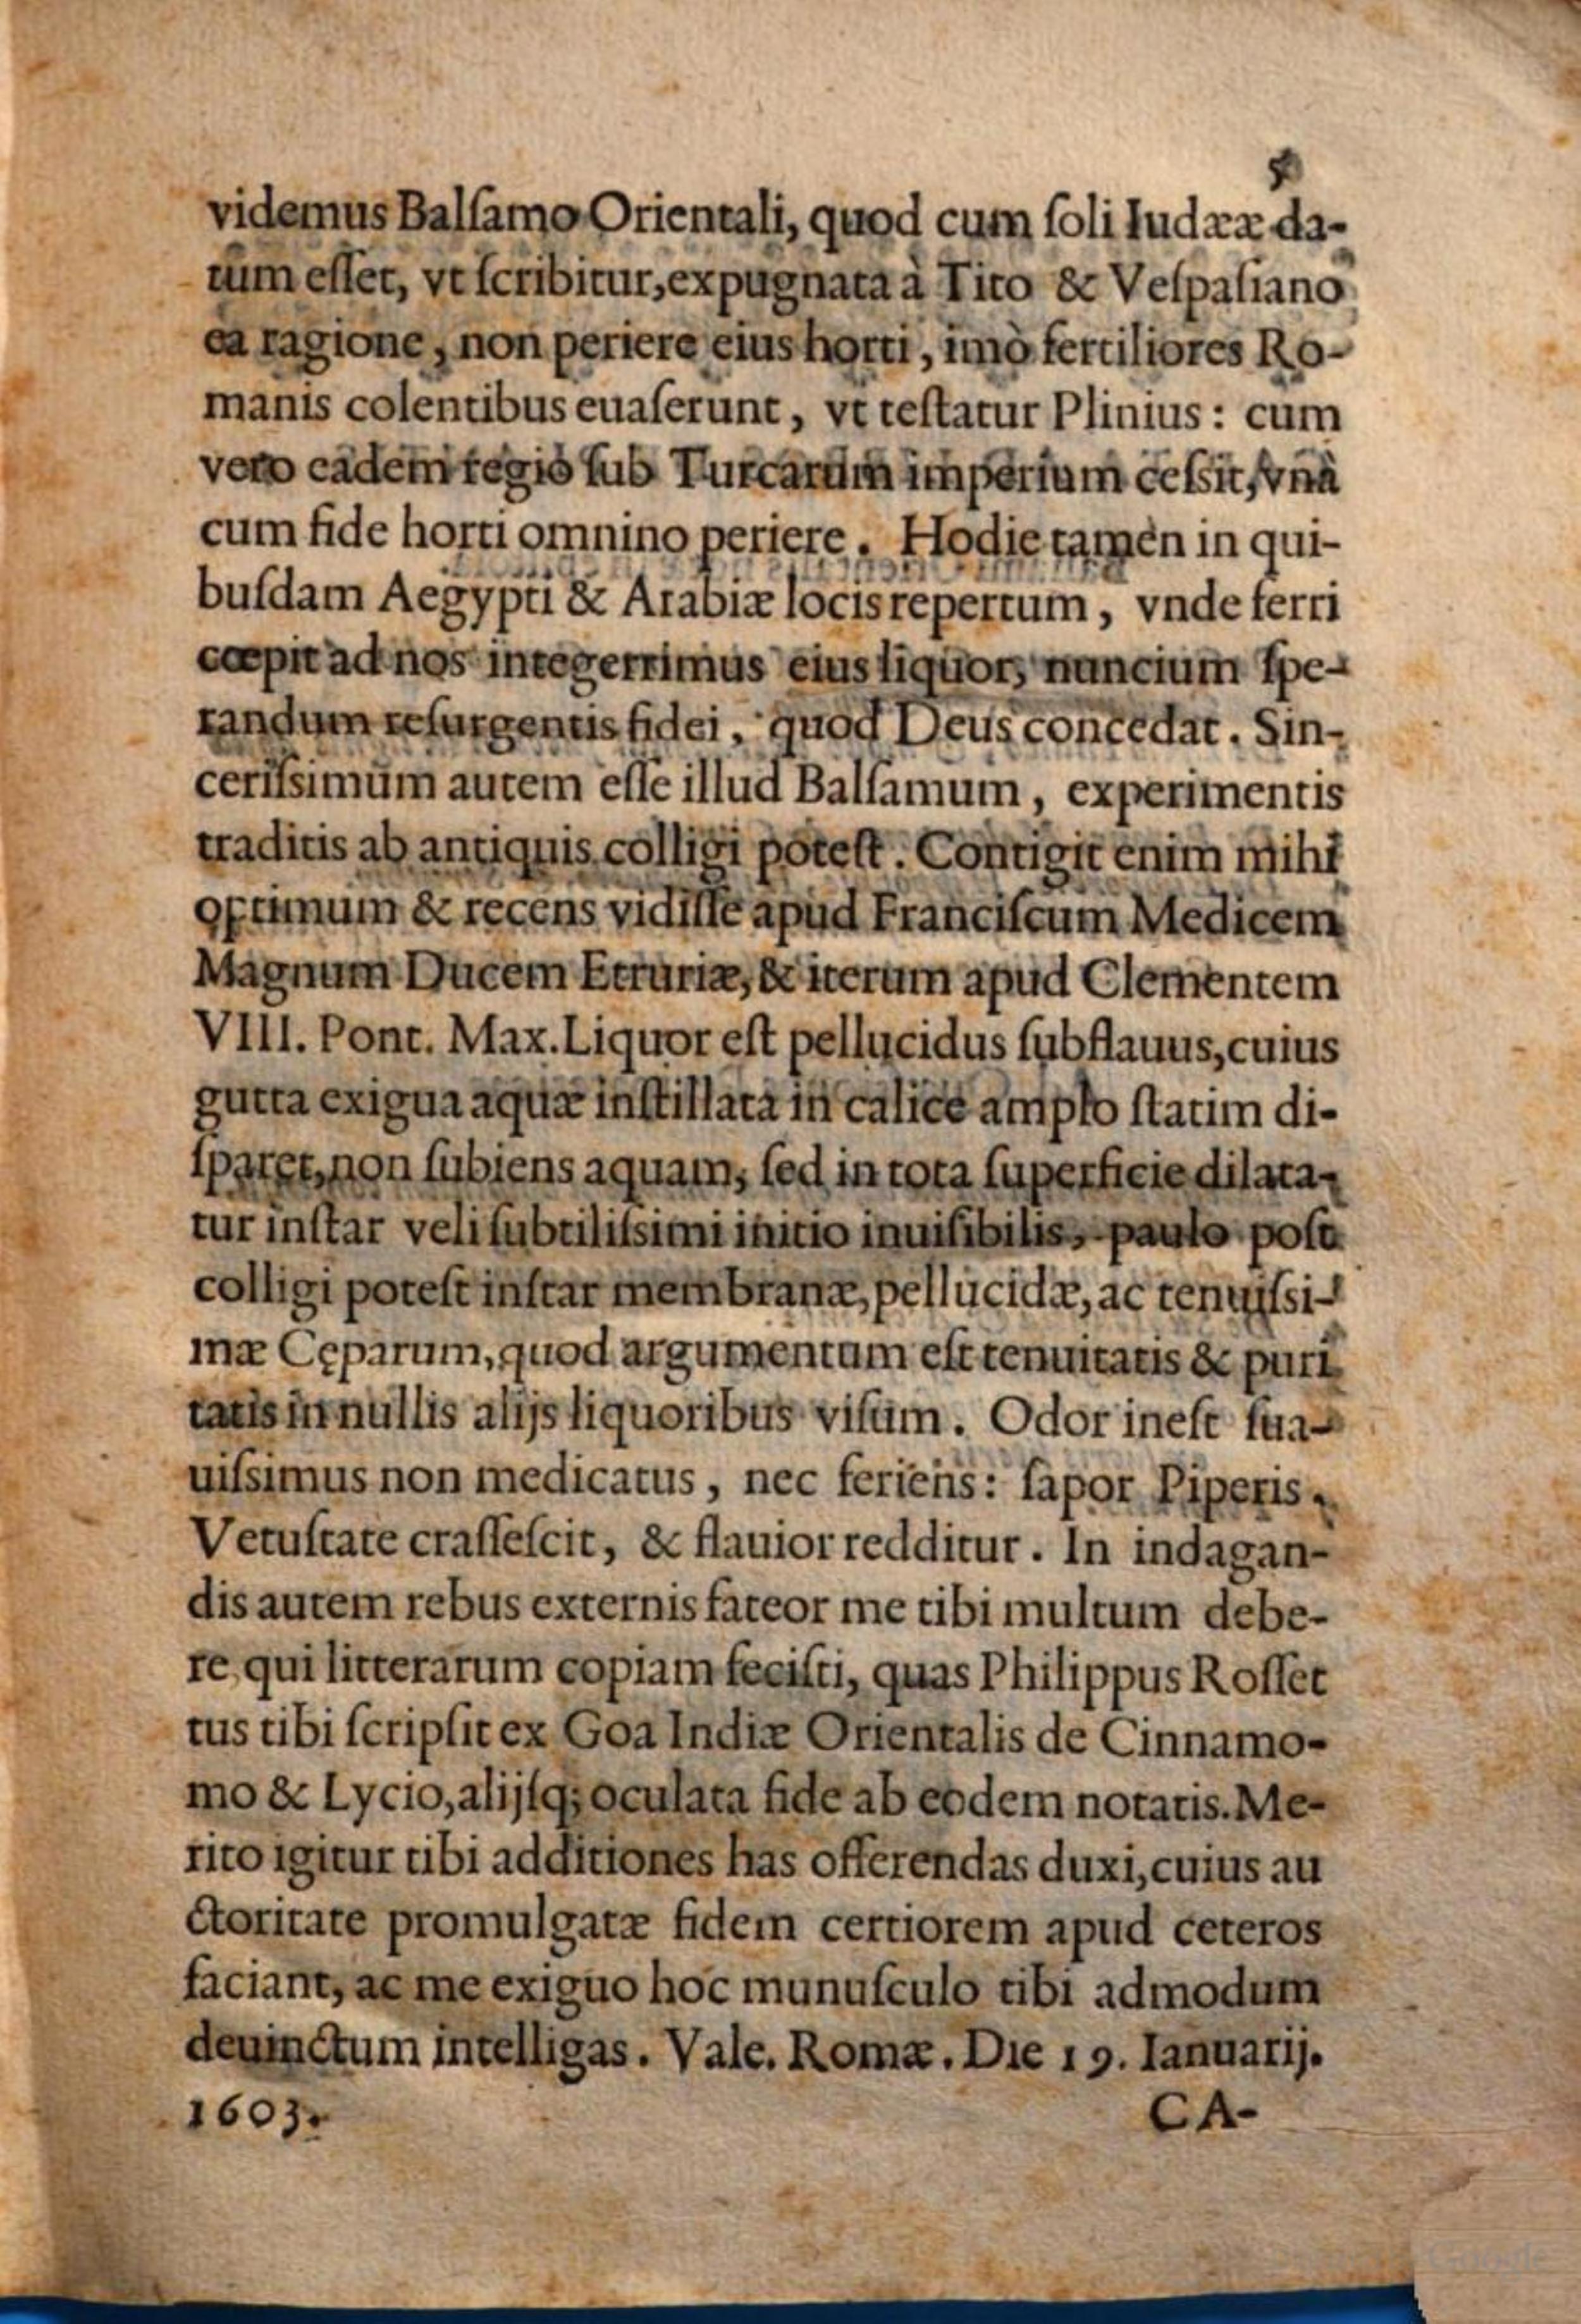 5
videmus Balſamo Orientali, quod cum ſoli Iudææ da-
tum eſſet, vt ſcribitur, expugnata à Tito & Veſpaſiano
ea ragione, non periere eius horti, imò fertiliores Ro-
manis colentibus euaſerunt, vt teſtatur Plinius: cum
vero eadem regio ſub Turcarum imperium ceſsit, vnà
cum fide horti omnino periere. Hodie tamen in qui-
buſdam Aegypti & Arabiæ locis repertum, vnde ferri
cœpit ad nos integerrimus eius liquor, nuncium ſpe-
randum reſurgentis fidei, quod Deus concedat. Sin-
ceriſsimum autem eſſe illud Balſamum, experimentis
traditis ab antiquis colligi poteſt. Contigit enim mihi
optimum & recens vidiſſe apud Franciſcum Medicem
Magnum Ducem Etruriæ, & iterum apud Clementem
VIII. Pont. Max. Liquor eſt pellucidus ſubflauus, cuius
gutta exigua aquæ inſtillata in calice amplo ſtatim di-
ſparet, non ſubiens aquam, ſed in tota ſuperficie dilata-
tur inſtar veli ſubtiliſsimi initio inuiſibilis, paulo poſt
colligi poteſt inſtar membranæ, pellucidæ, ac tenuiſsi-
mæ Cęparum, quod argumentum eſt tenuitatis & puri
tatis in nullis alijs liquoribus viſum. Odor ineſt ſua-
uiſsimus non medicatus, nec feriens: ſapor Piperis.
Vetuſtate craſſeſcit, & flauior redditur. In indagan-
dis autem rebus externis fateor me tibi multum debe-
re, qui litterarum copiam feciſti, quas Philippus Roſſet
tus tibi ſcripſit ex Goa Indiæ Orientalis de Cinnamo-
mo & Lycio, alijſq; oculata fide ab eodem notatis. Me-
rito igitur tibi additiones has offerendas duxi, cuius au
ctoritate promulgatæ fidem certiorem apud ceteros
faciant, ac me exiguo hoc munuſculo tibi admodum
deuinctum intelligas. Vale. Romæ. Die 19. Ianuarij.
1603. CA-